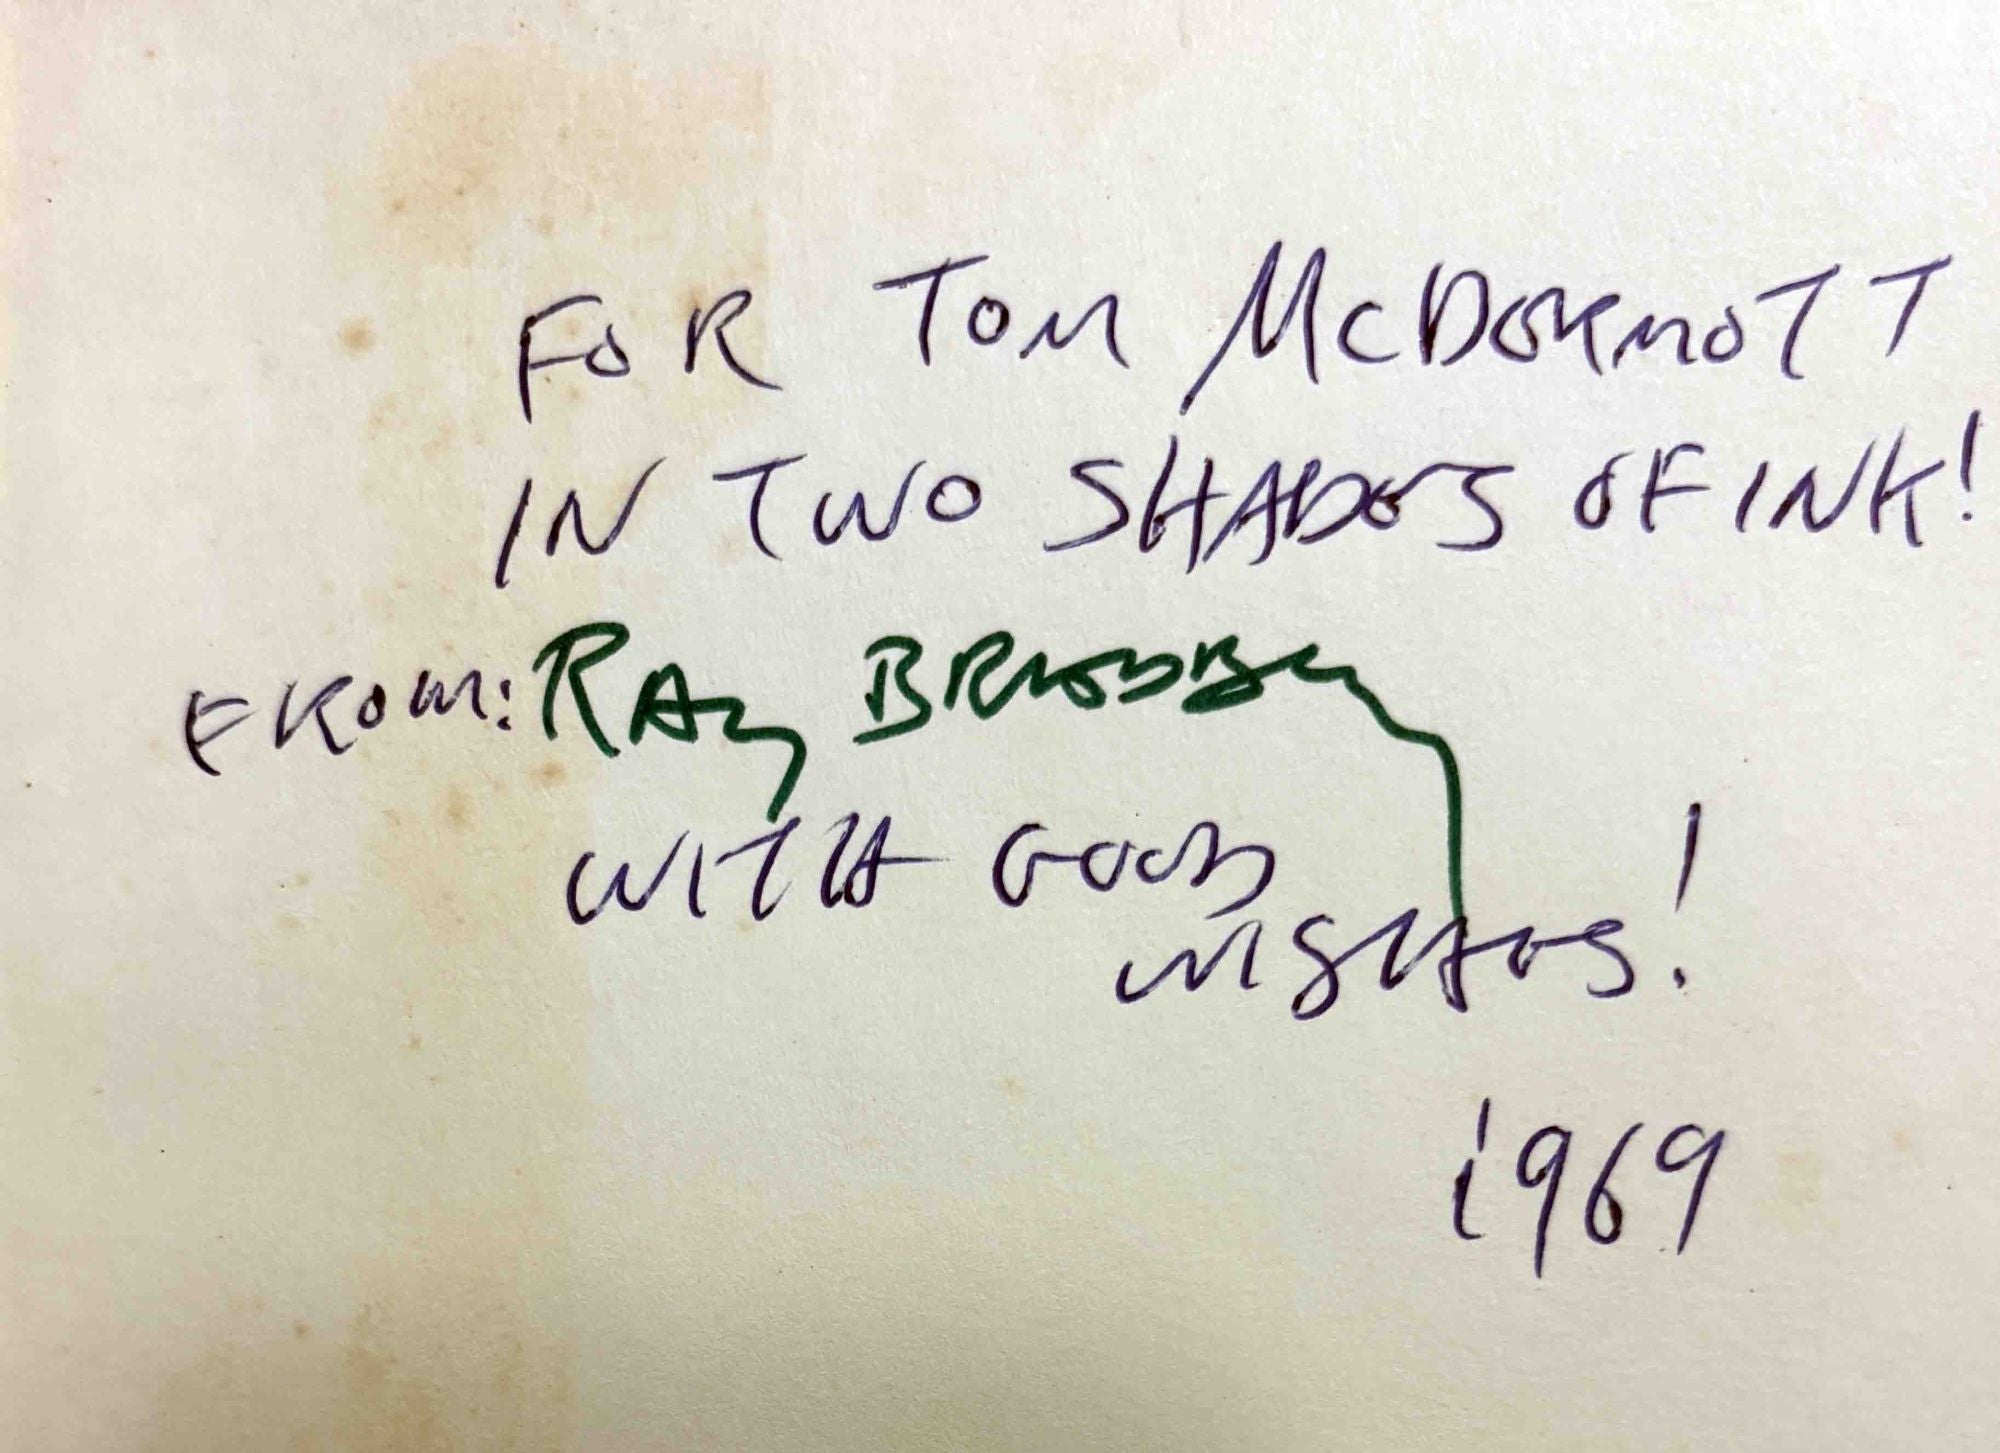 FOR TOM McDERMOTT
IN TWO SHADES OF INK!
FROM: RAY BRADBURY
WITH GOOD
WISHES!
1969